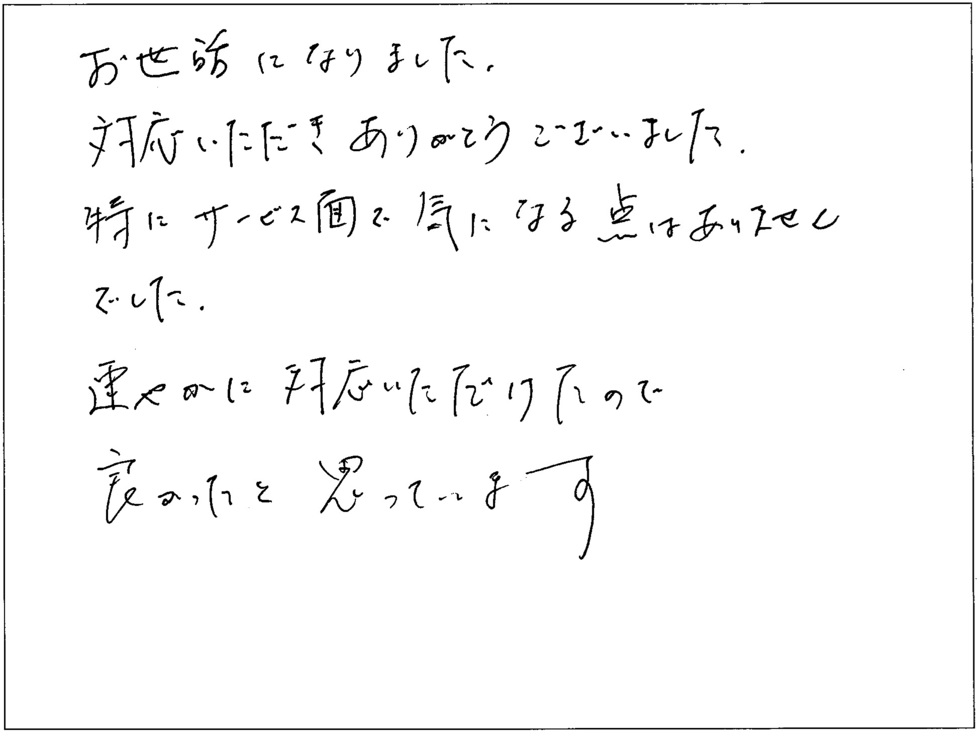 お世話になりました.
対応いただきありがとうございました.
特にサービス面で気になる点はありません
でした.
速やかに対応いただけたので
良かったと思っています